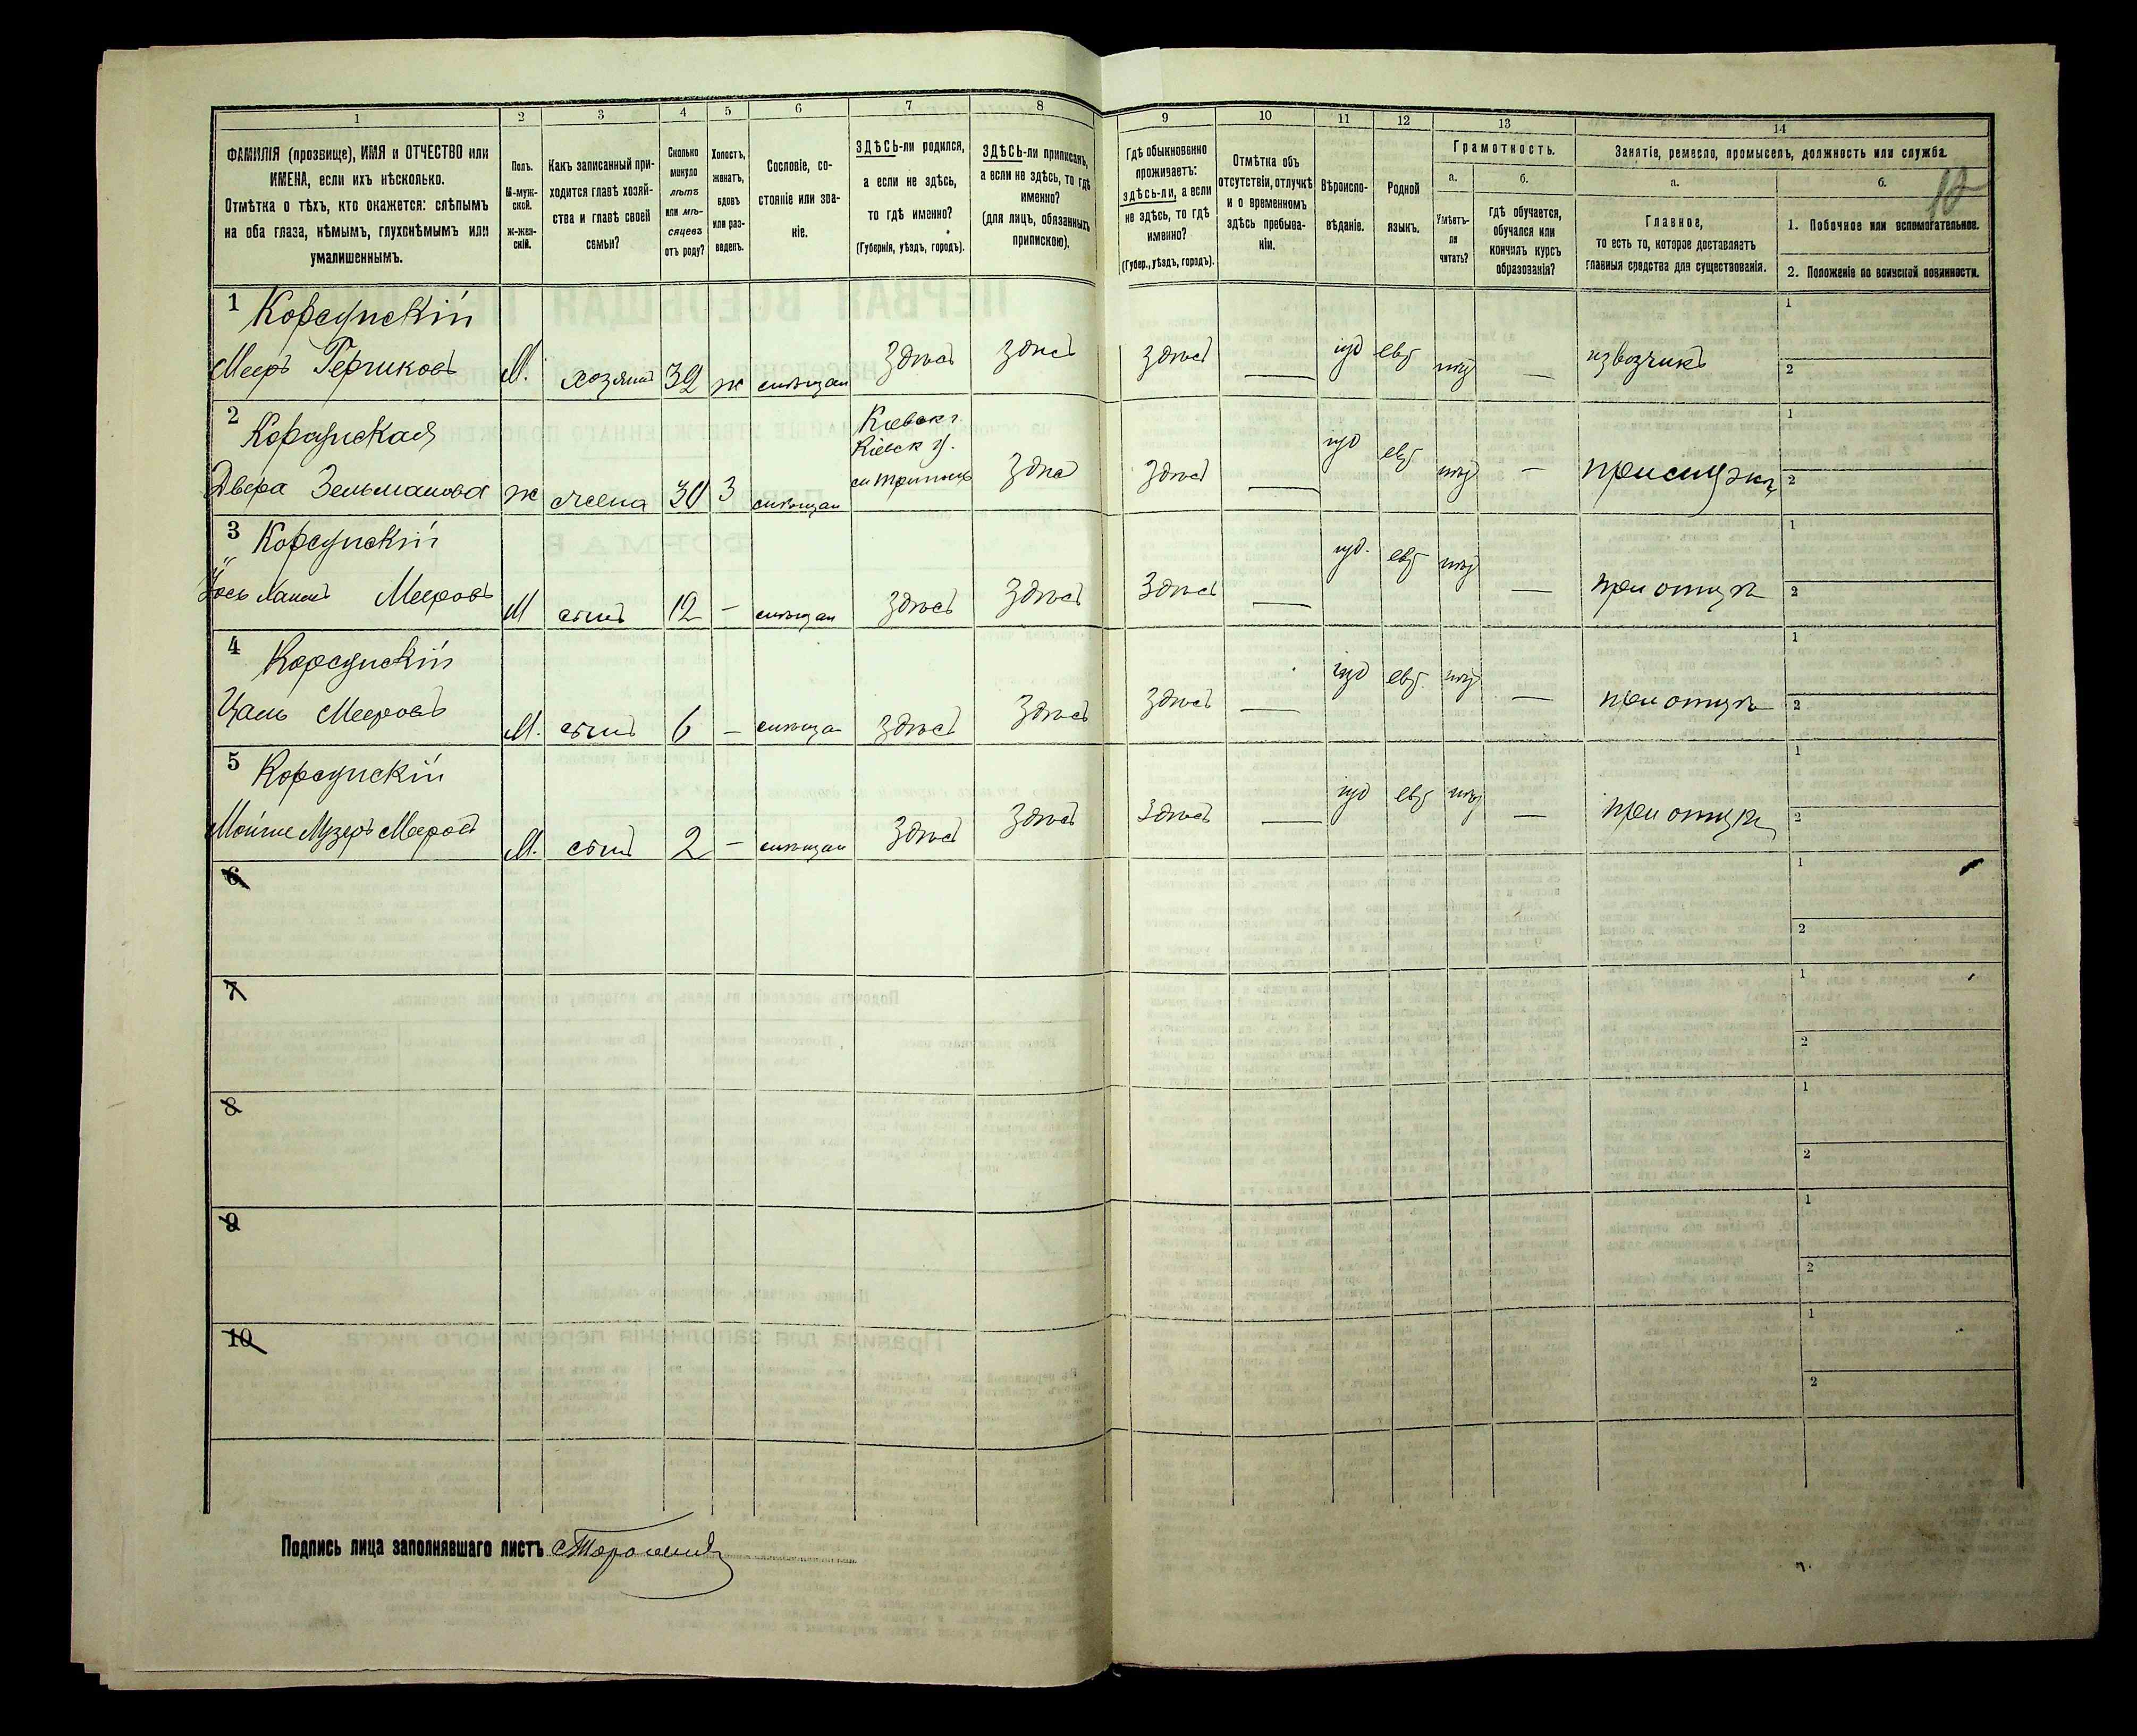 1
2
3
4
5
6
7
8
ФАМИЛІЯ (прозвище), ИМЯ и ОТЧЕСТВО или
ИМЕНА, если ихъ нѣсколько.
Отмѣтка о тѣхъ, кто окажется: слѣпымъ
на оба глаза, нѣмымъ, глухонѣмымъ или
умалишеннымъ.
Полъ.
М-муж-
ской.
ж-жен-
скій.
Какъ записанный при-
ходится главѣ хозяй-
ства и главѣ своей
семьи?
Сколько
минуло
лѣтъ
или мѣ-
сяцевъ
отъ роду?
Холостъ,
женатъ,
вдовъ
или раз-
веденъ.
Сословіе, со-
стояніе или зва-
ніе.
ЗДѢСЬ-ли родился,
а если не здѣсь,
то гдѣ именно?
(Губернія, уѣздъ, городъ).
ЗДѢСЬ-ли приписанъ,
а если не здѣсь, то гдѣ
именно?
(для лицъ, обязанныхъ
припискою).
9
10
11
12
13
14
Гдѣ обыкновенно
проживаетъ:
здѣсь-ли, а если
не здѣсь, то гдѣ
именно?
(Губер., уѣздъ, городъ).
Отмѣтка объ
отсутствіи, отлучкѣ
и о временномъ
здѣсь пребыва-
ніи.
Вѣроиспо-
вѣданіе.
Родной
языкъ.
Грамотность.
а.
б.
Умѣетъ-
ли
читать?
гдѣ обучается,
обучался или
кончилъ курсъ
образованія?
Занятіе, ремесло, промыселъ, должность или служба.
а.
б.
Главное,
то есть то, которое доставляетъ
главныя средства для существованія.
1. Побочное или вспомогательное.
2. Положеніе по воинской повинности.
1 Корсунскій
Мееръ Гершковъ М. хозяинъ 32 ж мѣщан здѣсь здѣсь здѣсь — іуд евр — извозчикъ
1
2
2 Корсунская
Двера Зельманова ж жена 30 З мѣщан
Кіевск г.
Кіевск у.
здѣсь здѣсь — іуд евр —
1
2
3 Корсунскій
Хаимъ Мееровъ М сынъ 12 — мѣщан здѣсь здѣсь здѣсь — іуд. евр — при отцѣ
1
2
4 Корсунскій
Мееровъ М. сынъ 6 — мѣща здѣсь здѣсь здѣсь — іуд евр. — при отцѣ
1
2
5 Корсунскій
Мееров М. сынъ 2 — мѣщан здѣсь здѣсь здѣсь — іуд евр — при отцѣ
1
2
6
1
2
7
1
2
8
1
2
9
1
2
10
1
2
Подпись лица заполнявшаго листъ